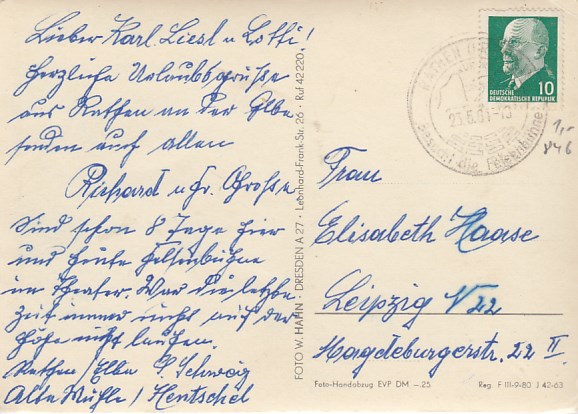 Lieber Karl, Liesl u Lotti!
Herzliche Urlaubsgrüsse
aus Rathen an der Elbe
senden euch allen
Richard u Fr. Grosse
Sind schon 8 Tage hier
und heute Felsenbühne
im Theater. War die letzte
Zeit immer nicht auf der
Höhe nicht laufen.
Rathen/Elbe
Alte Mühle/Hentschel
FOTO W. HAHN · DRESDEN A 27 · Leonhard-Frank-Str. 26 · Ruf 42220
DEUTSCHE
DEMOKRATISCHE REPUBLIK
10
besucht die Felsenbühne
1,-
846
Frau
Elisabeth Haase
Leipzig N22
Magdeburgerstr. 22 II
Foto-Handabzug EVP DM -.25
Reg. F III-9-80 J 42-63